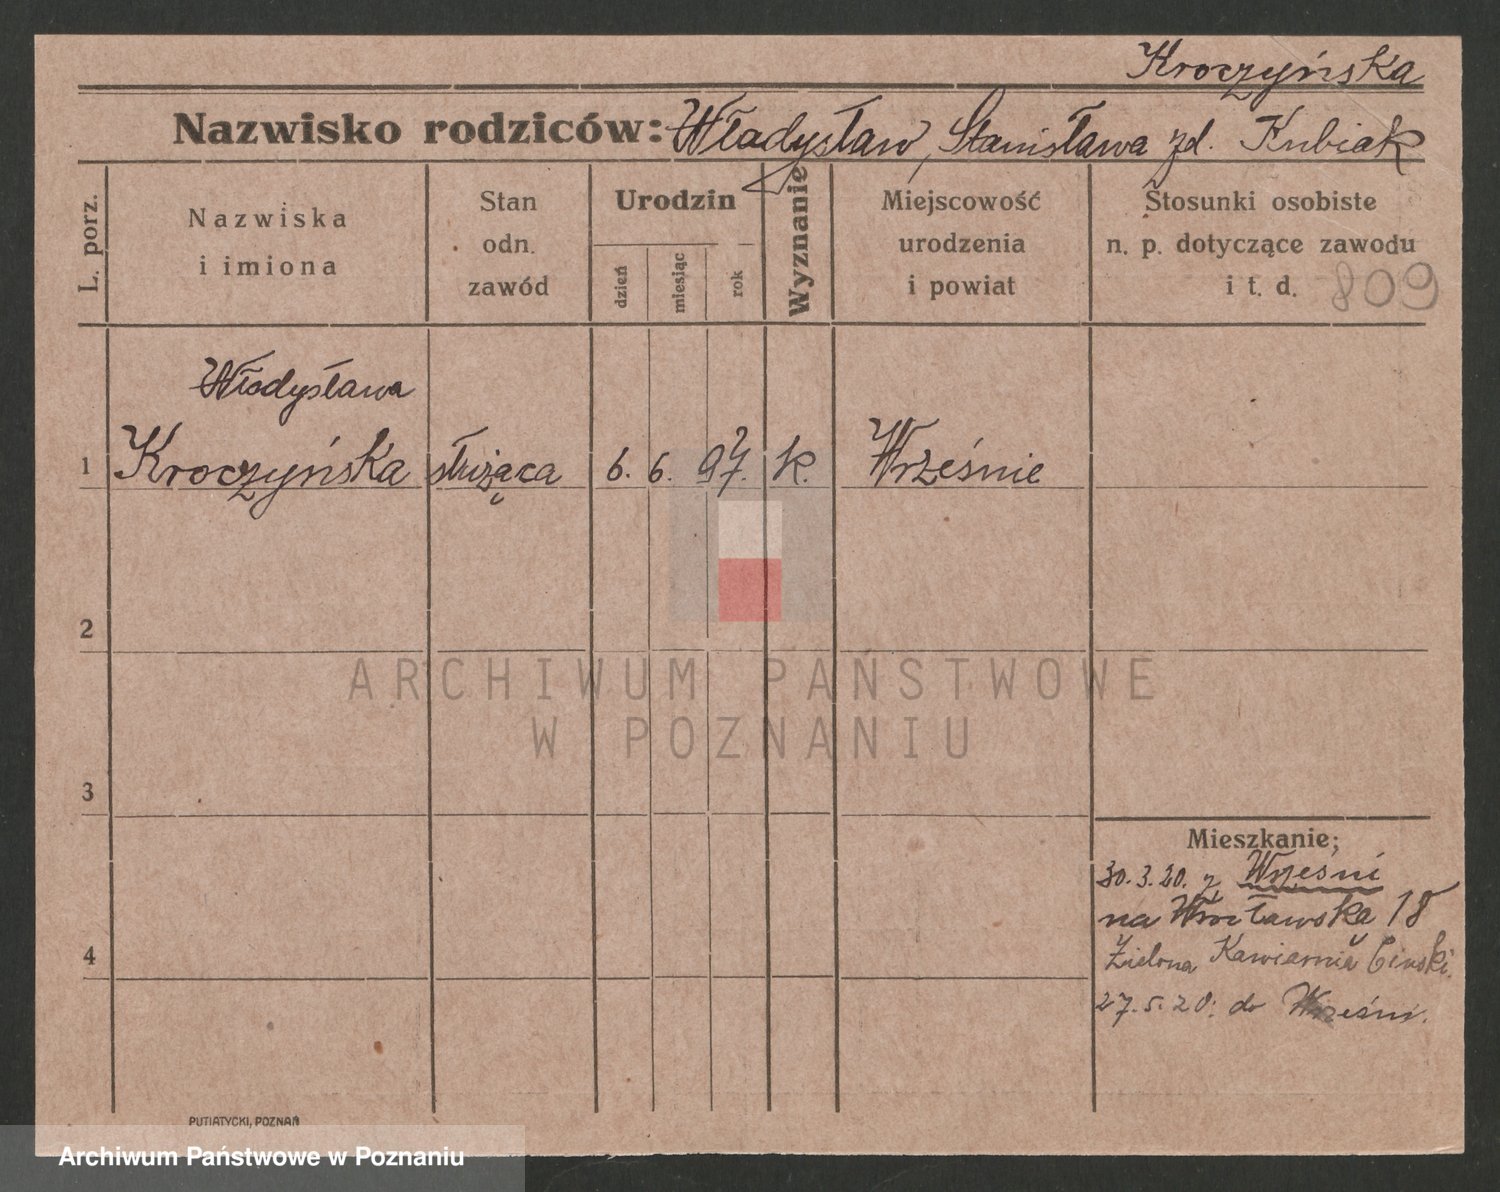 Kroczyńska
Nazwisko rodziców: Władysław, Stanisława zd. Kubiak
L. porz.
Nazwiska
i imiona
Stan
odn.
zawód
Urodzin
dzień
miesiąc
rok
Wyznanie
Miejscowość
urodzenia
i powiat
Stosunki osobiste
n. p. dotyczące zawodu
i t. d.
809
Władysława
1 Kroczyńska służąca 6. 6. 97. k. Wrześnie
2
ARCHIWUM PAŃSTWOWE
W POZNANIU
3
Mieszkanie;
30.3.20. z Wrześni
na Wrocławska 18
4
Zielona Kawiarnia
27.5.20. do Wrześni.
PUTIATYCKI, POZNAŃ
Archiwum Państwowe w Poznaniu